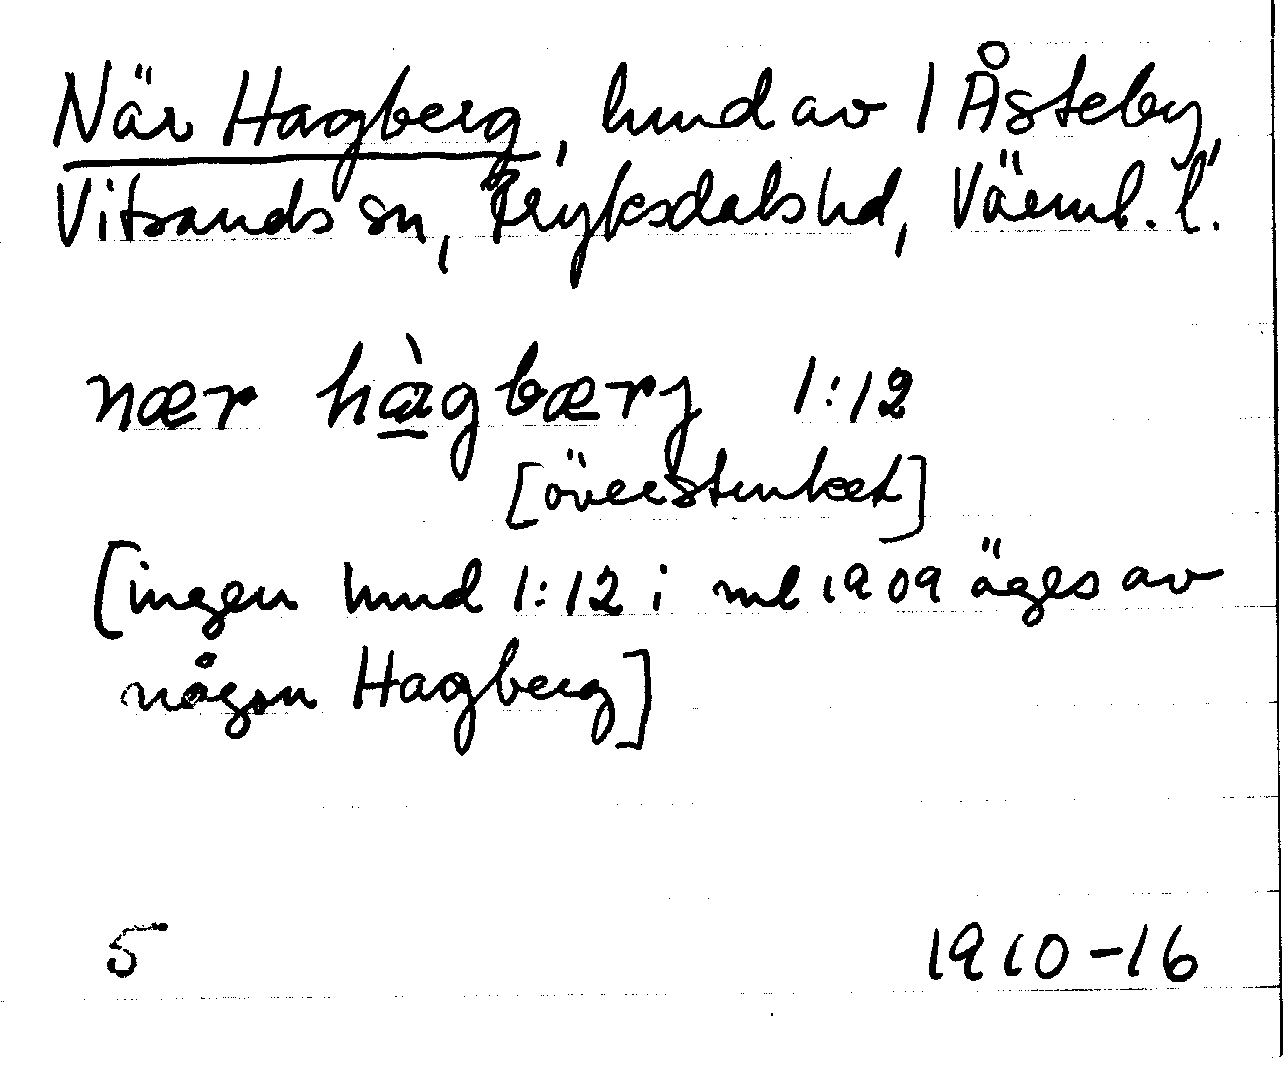 När Hagberg, hmd av 1 Åsteby,
Vitsands sn, Fryksdals hd, Värml. l.
nær hàgbærj 1:12
[överstruket]
[ingen hmd 1:12 i ml 1909 äges av
någon Hagberg]
5 1910-16